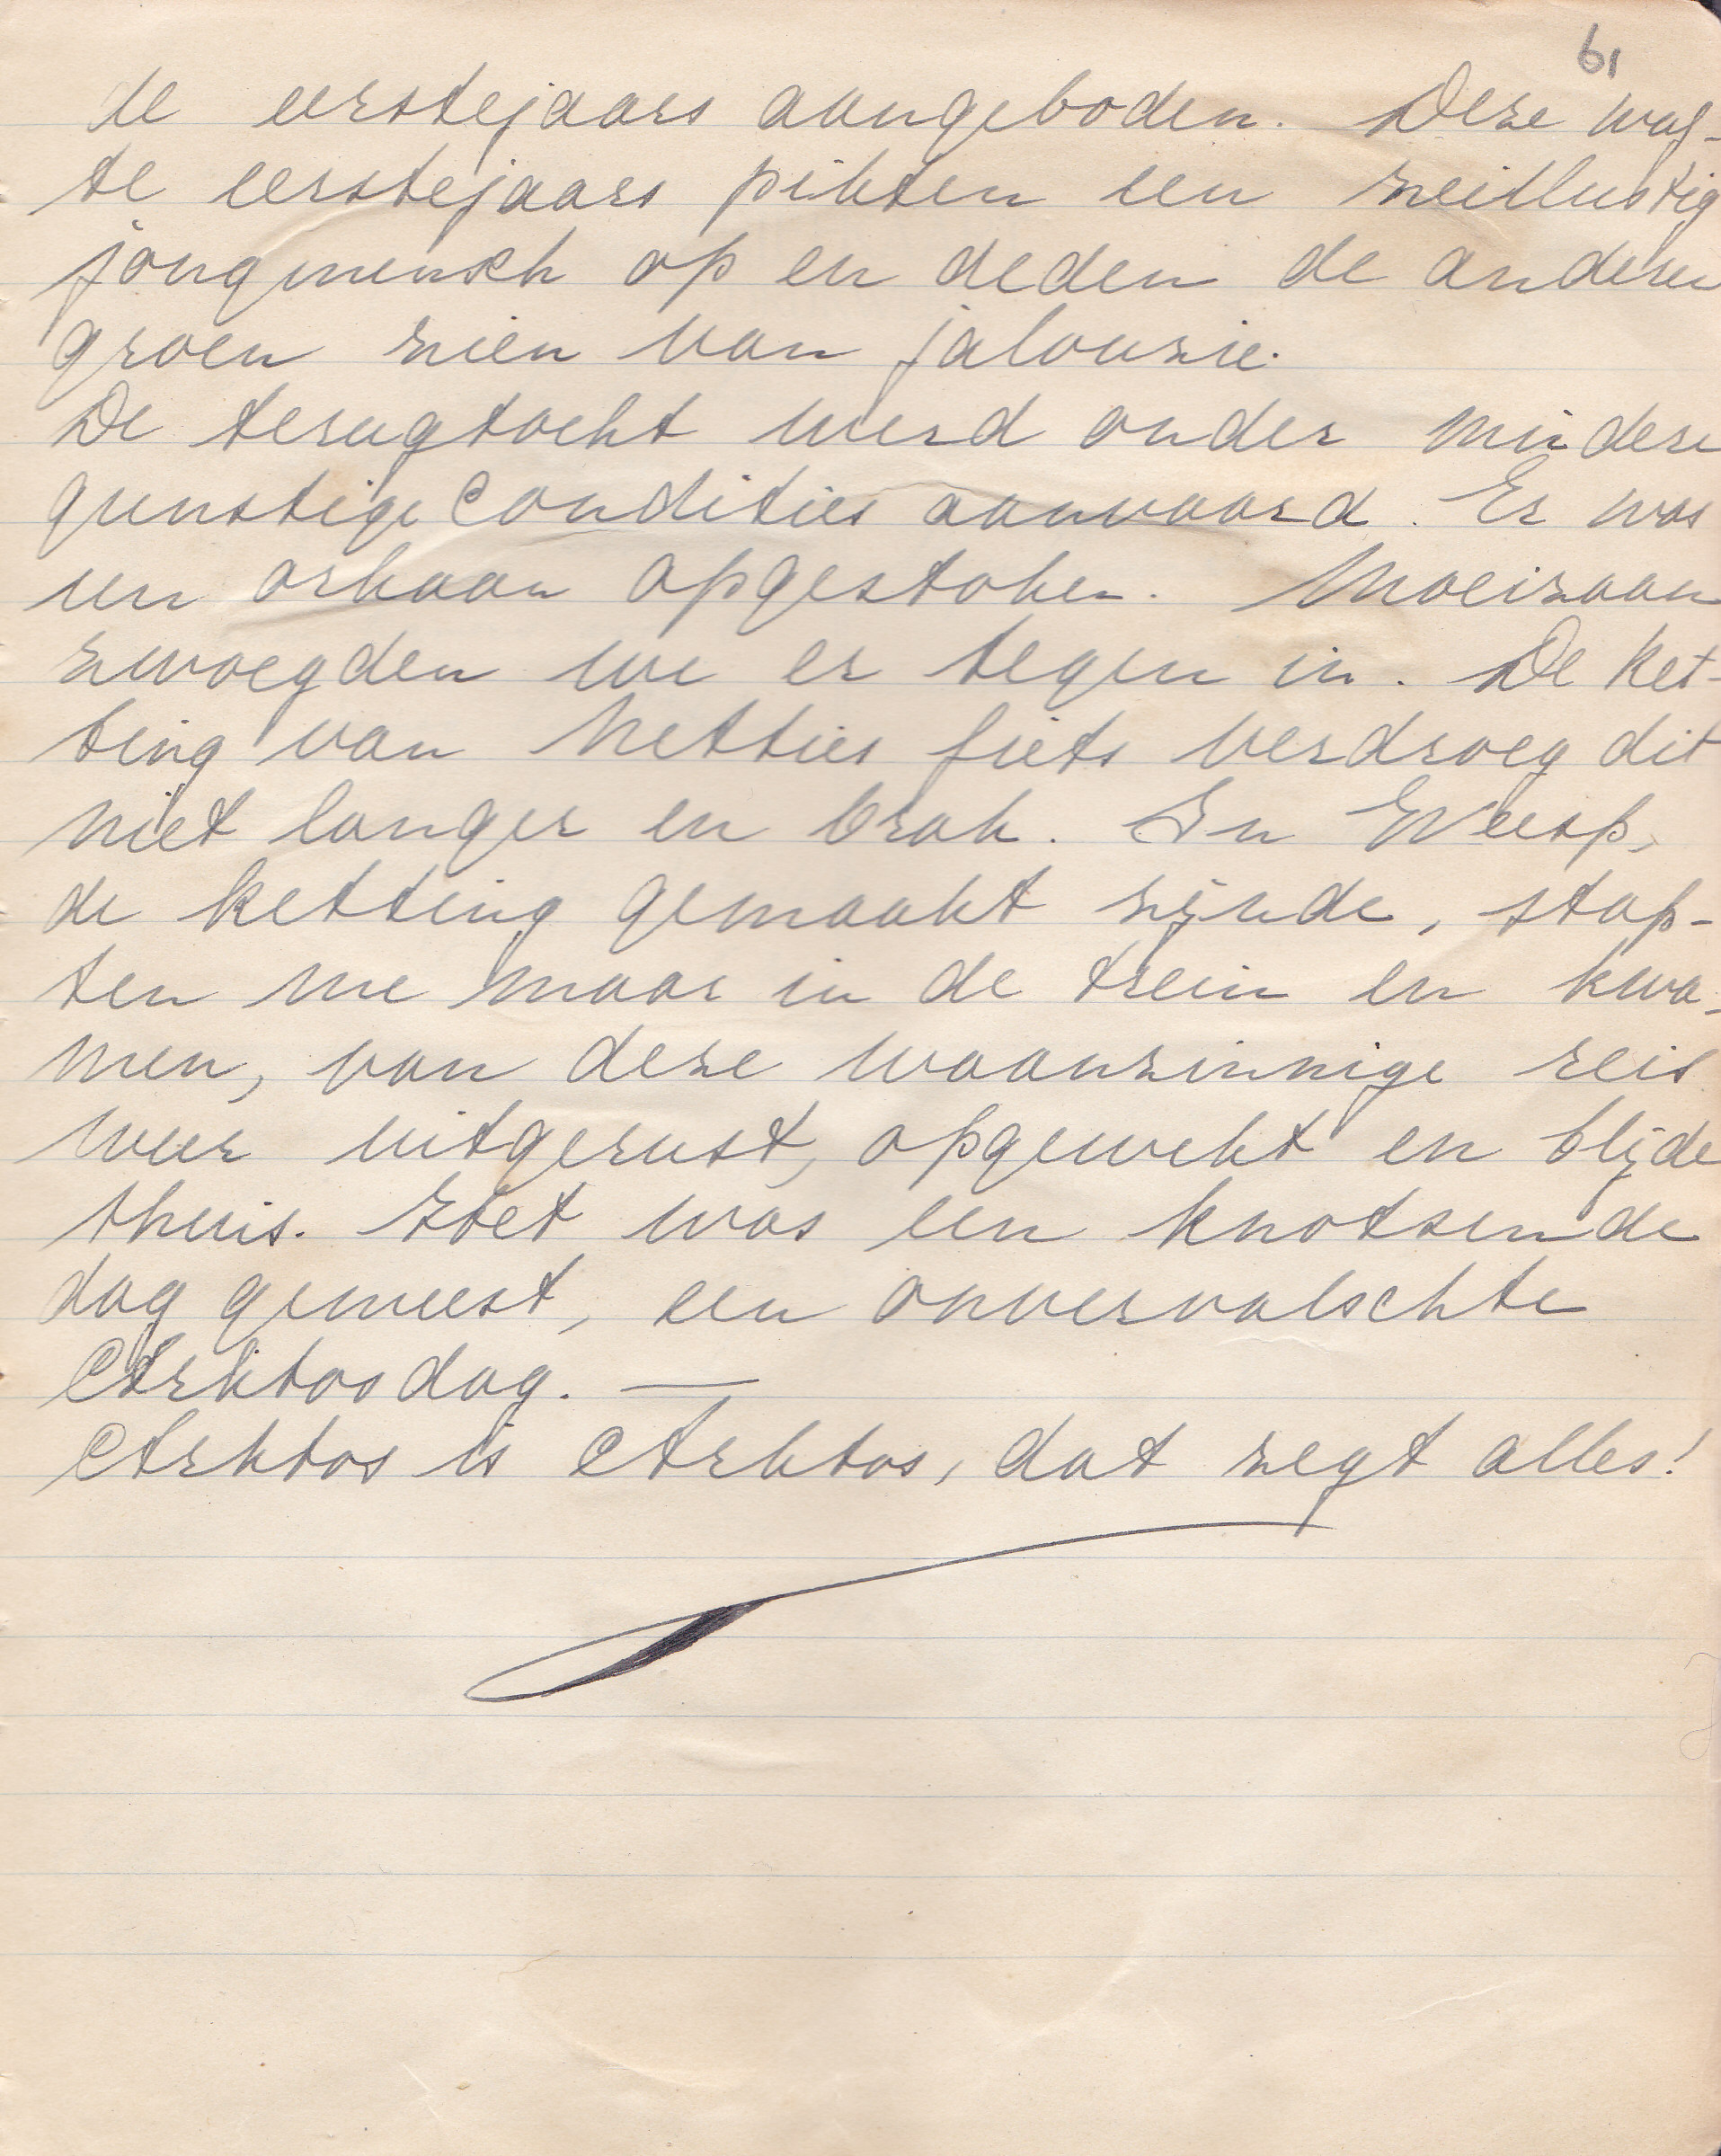 61
de eerstejaars aangeboden. Deze waf-
te eerstejaars pikten een zeillustig
jongmensch op en deden de anderen
groen zien van jalouzie.
De terugtocht werd onder mindere
gunstige condities aanvaard. Er was
een orkaan opgestoken. Moeizaam
zwoegden we er tegen in. De ket-
ting van Netties fiets verdroeg dit
niet langer en brak. In Weesp,
de ketting gemaakt zijnde, stap-
ten we maar in de trein en kwa-
men, van deze waanzinnige reis
weer uitgerust, opgewekt en blijde
thuis. Het was een knotsende
dag geweest, een onvervalschte
Arktosdag. —
Arktos is Arktos, dat zegt alles!